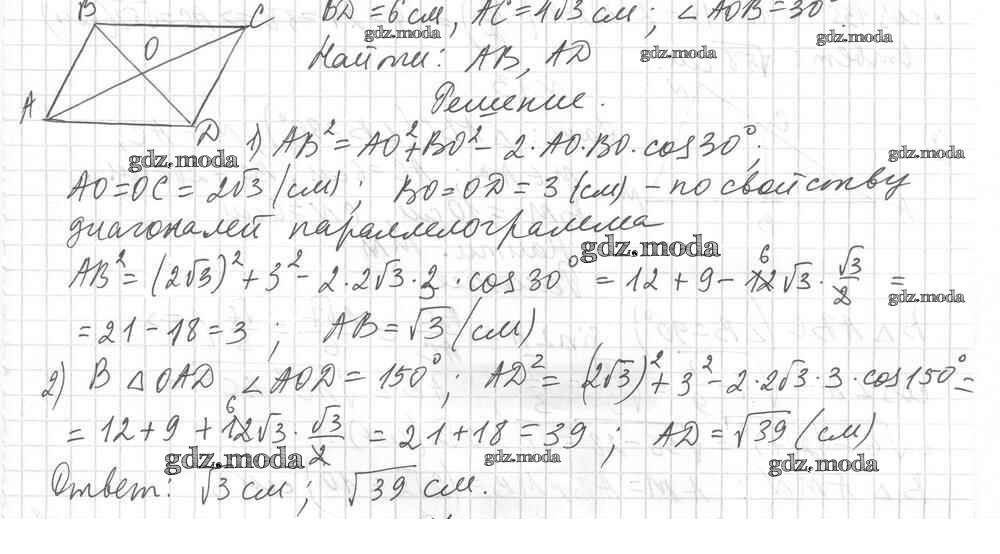 B C O A D
BD = 6 см, AC = 4√3 см; ∠AOB = 30°.
gdz.moda gdz.moda gdz.moda
Найти: AB, AD
Решение.
1) AB² = AO² + BO² - 2·AO·BO·cos30°;
gdz.moda gdz.moda
AO = OC = 2√3 (см); BO = OD = 3 (см) – по свойству
диагоналей параллелограмма
gdz.moda
AB² = (2√3)² + 3² - 2·2√3·3·cos30° = 12 + 9 - 12 6 √3 · √3/2 =
gdz.moda
= 21 - 18 = 3; AB = √3 (см)
2) В △OAD ∠AOD = 150°; AD² = (2√3)² + 3² - 2·2√3·3·cos150° =
= 12 + 9 + 12 6 √3 · √3/2 = 21 + 18 = 39; AD = √39 (см)
gdz.moda gdz.moda gdz.moda
Ответ: √3 см; √39 см.